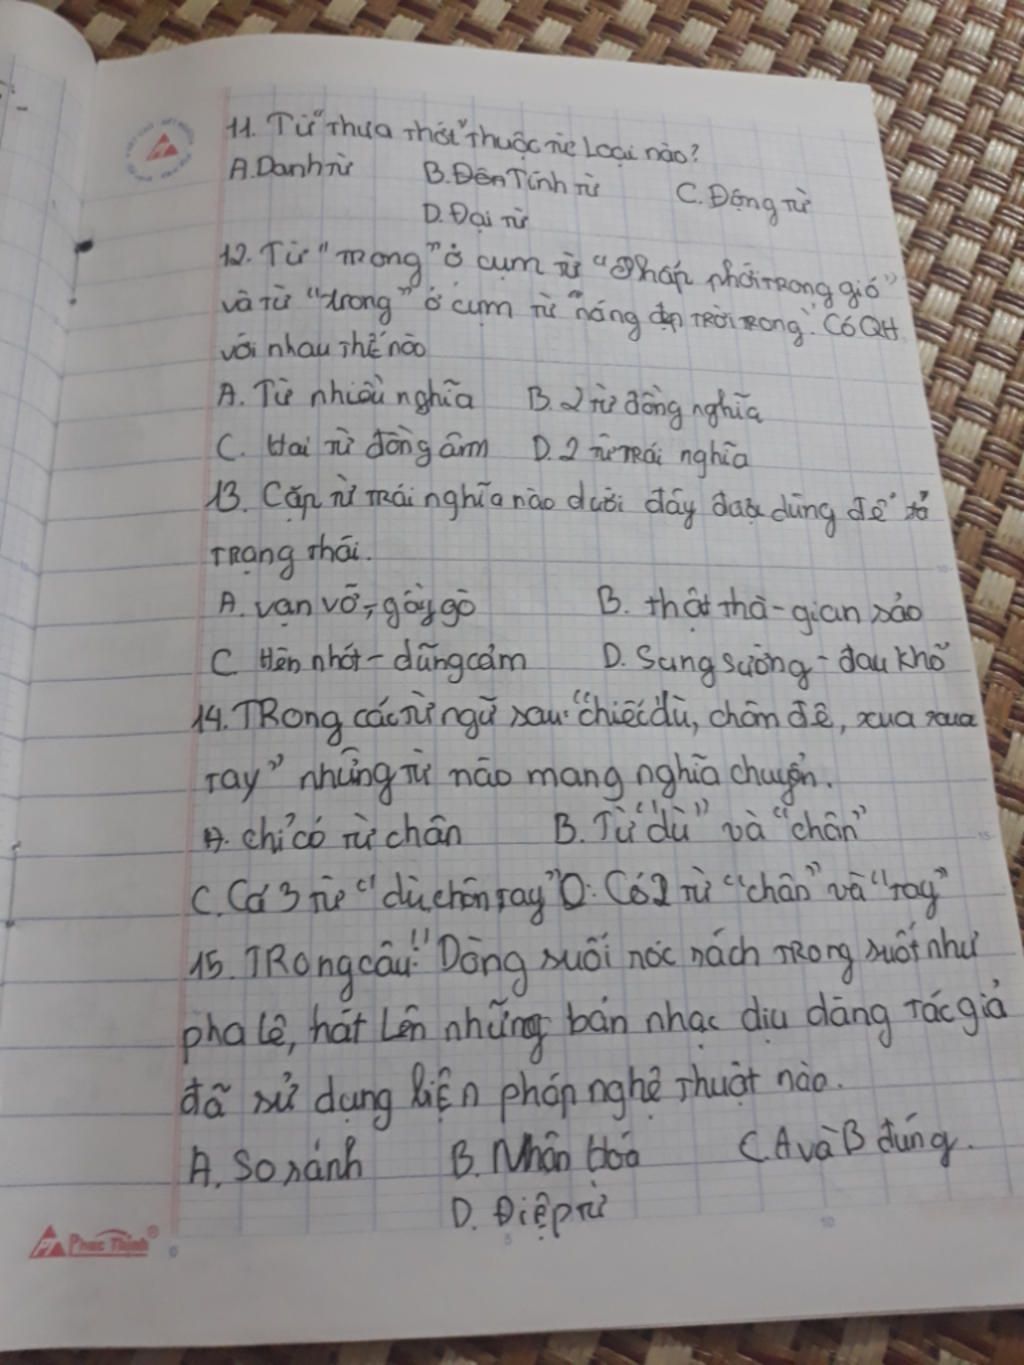 11. Từ "Thưa thớt" thuộc từ loại nào?
A. Danh từ B. Đến Tính từ C. Động từ
D. Đại từ
12. Từ "trong" ở cụm từ "Phấp phới trong gió"
và từ "trong" ở cụm từ "nắng đẹp trời trong". Có QH
với nhau thế nào
A. Từ nhiều nghĩa B. 2 từ đồng nghĩa
C. Hai từ đồng âm D. 2 từ trái nghĩa
13. Cặp từ trái nghĩa nào dưới đây được dùng để tả
trạng thái.
A. vạn vỡ - gầy gò B. thật thà - gian xảo
C Hèn nhát - dũng cảm D. Sung sướng - đau khổ
14. Trong các từ ngữ sau: "chiếc dù, chân đê, xua xua
tay" những từ nào mang nghĩa chuyển.
A. chỉ có từ chân B. Từ "dù" và "chân"
C. Cả 3 từ "dù, chân, tay" D. Có 2 từ "chân" và "tay"
15. Trong câu: "Dòng suối róc rách trong suốt như
pha lê, hát lên những bản nhạc dịu dàng Tác giả
đã sử dụng biện pháp nghệ thuật nào.
A. So sánh B. Nhân Hóa C. A và B đúng.
D. Điệp từ
Phúc Thịnh